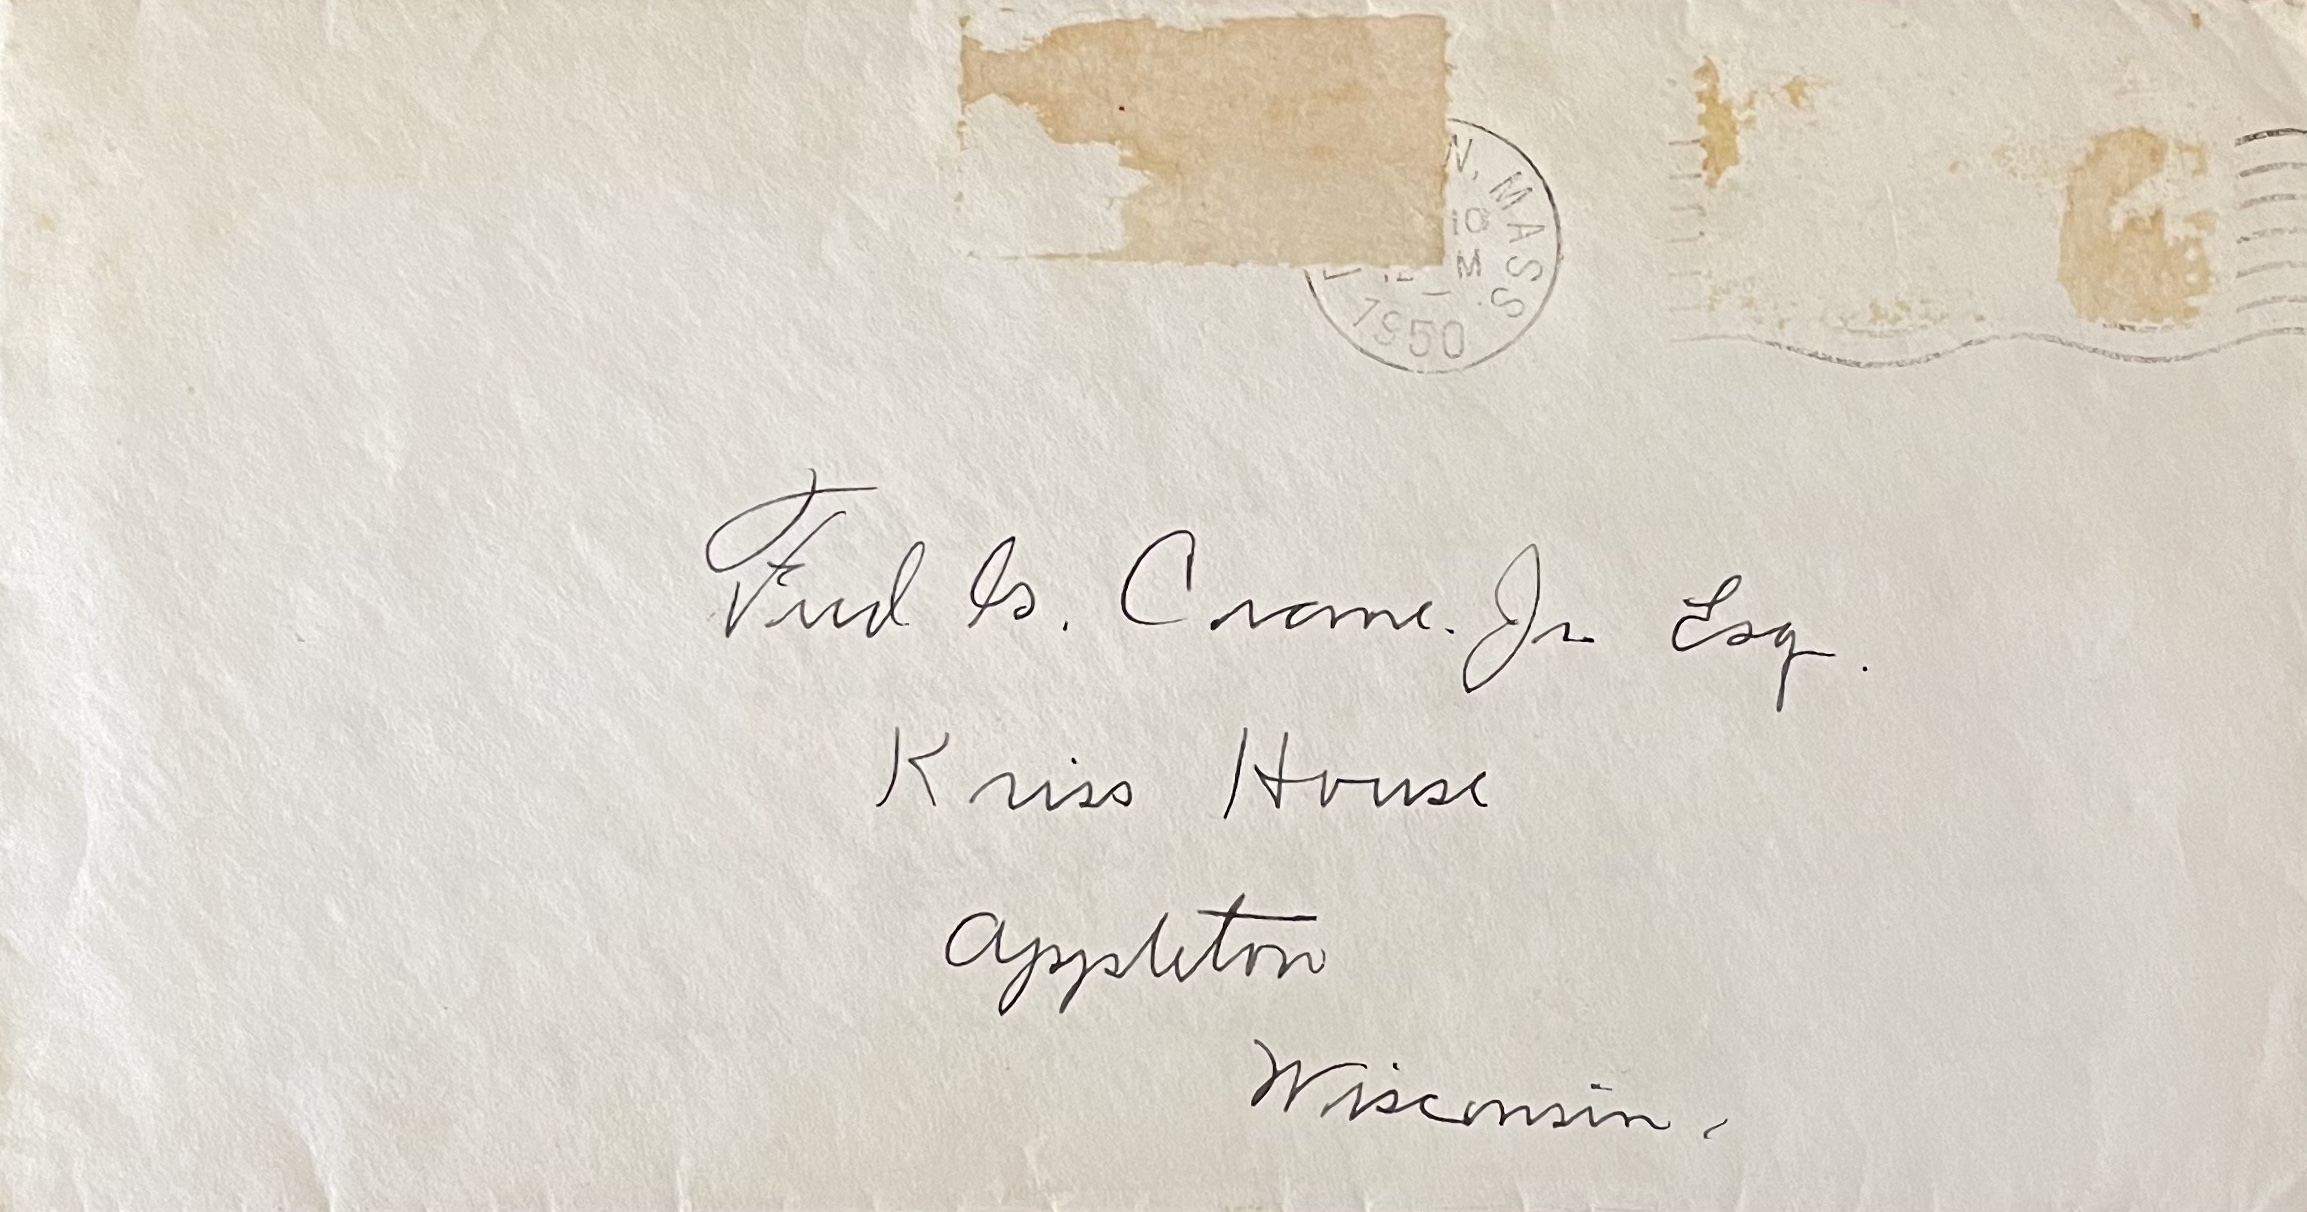 N, MASS.
10
12 M
1950
Fred G. Crane. Jr Esq.
Kriss House
Appleton
Wisconsin.